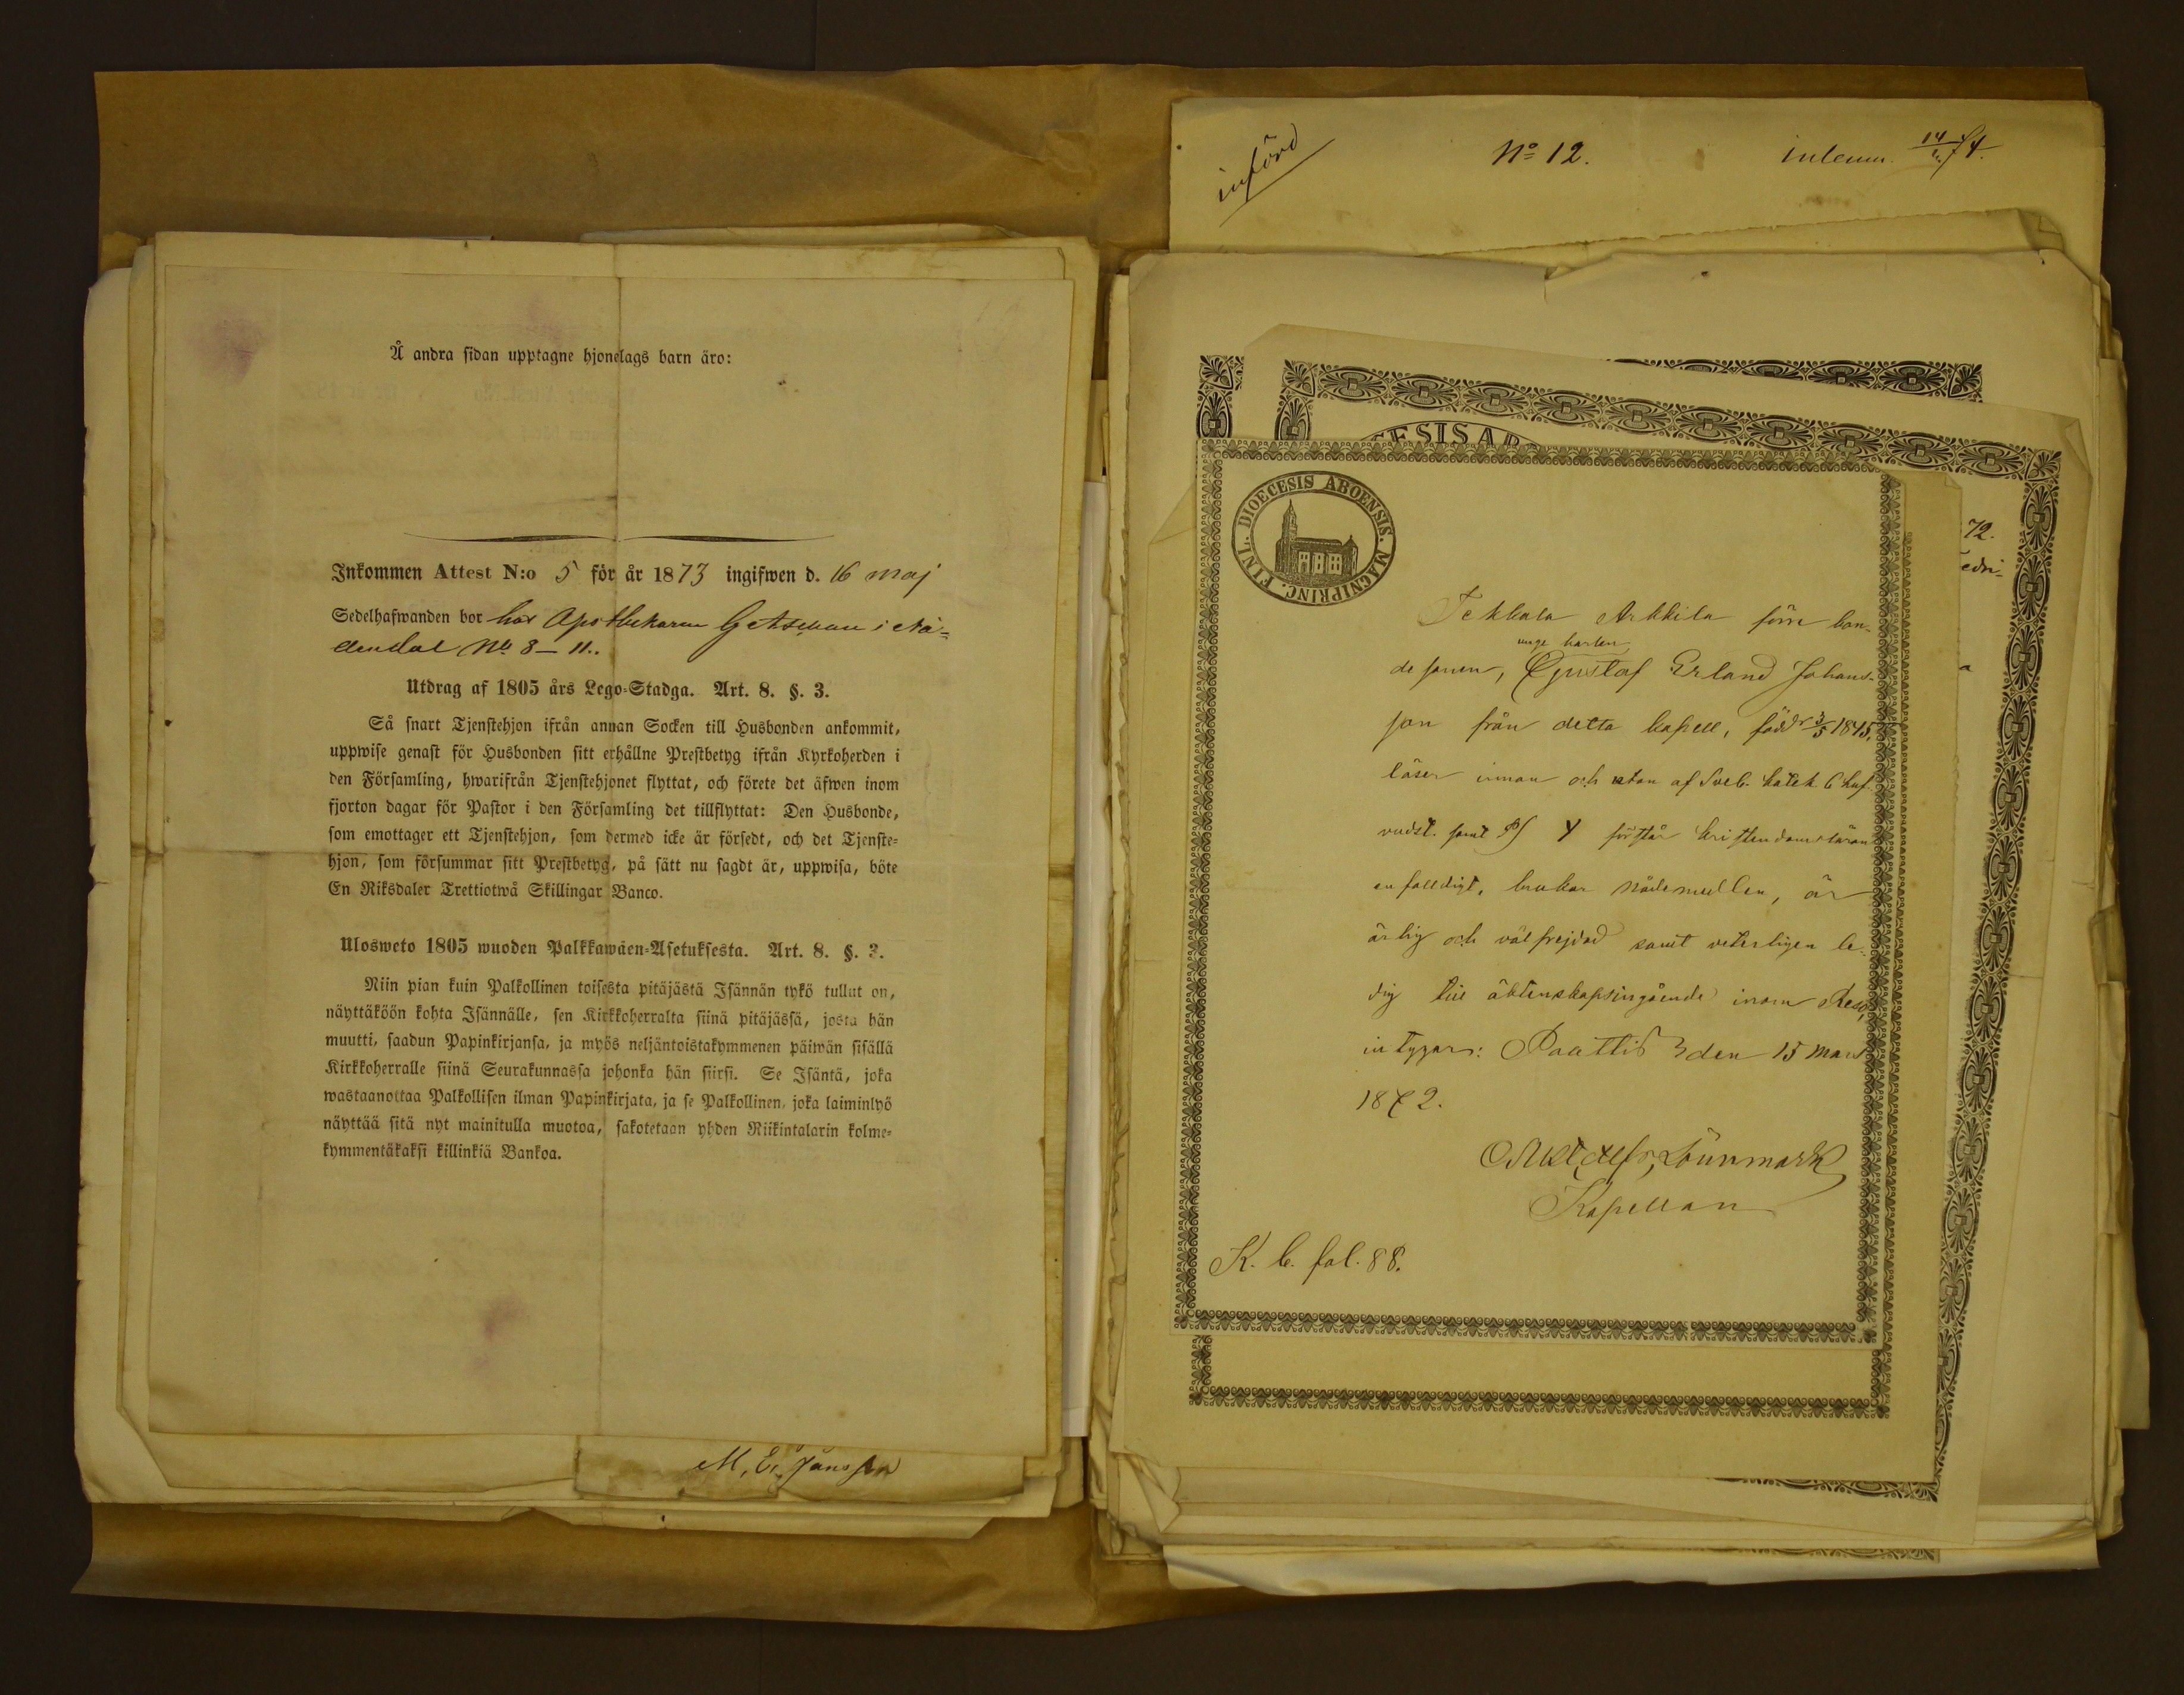 Å andra sidan upptagne hjonelags barn äro:
Inkommen Attest N:o 5 för år 1873 ingifwen d. 16 maj
Sedelhafwanden bor hos Apothekaren i Nå=
dendal No 8–11.
Utdrag af 1805 års Lego=Stadga. Art. 8. §. 3.
Så snart Tjenstehjon ifrån annan Socken till Husbonden ankommit,
uppwise genast för Husbonden sitt erhållne Prestbetyg ifrån Kyrkoherden i
den Församling, hwarifrån Tjenstehjonet flyttat, och förete det äfwen inom
fjorton dagar för Pastor i den Församling det tillflyttat: Den Husbonde,
som emottager ett Tjenstehjon, som dermed icke är försedt, och det Tjenste=
hjon, som försummar sitt Prestbetyg, på sätt nu sagdt är, uppwisa, böte
En Riksdaler Trettiotwå Skillingar Banco.
Ulosweto 1805 wuoden Palkkawäen=Asetuksesta. Art. 8. §. 3.
Niin pian kuin Palkollinen toisesta pitäjästä Isännän tykö tullut on,
näyttäköön kohta Isännälle, sen Kirkkoherralta siinä pitäjässä, josta hän
muutti, saadun Papinkirjansa, ja myös neljäntoistakymmenen päiwän sisällä
Kirkkoherralle siinä Seurakunnassa johonka hän siirsi. Se Isäntä, joka
wastaanottaa Palkollisen ilman Papinkirjata, ja se Palkollinen, joka laiminlyö
näyttää sitä nyt mainitulla muotoa, sakotetaan yhden Riikintalarin kolme=
kymmentäkaksi killinkiä Bankoa.
M. E. Jansson
införd
No 12.
inkom. 14/74.
CESIS AB
72.
edri-
a
DIOECESIS ABOENSIS. MAGNI PRINC. FINL.
Arkkila förre bon-
unge karlen
de sonen, Gustaf Erland Johans-
son från detta kapell, född 3/5 1845,
läser innan och utan af Sveb. katek 6 huf-
vudst. samt förstår kristendomsläran
enfalldigt, brukar nådemedlen, är
ärlig och välfrejdad samt veterligen le-
dig till äktenskapsingående inom Reso,
intygar: Paattis den 15 Mars
1872.
Lönnmark
Kapellan
K. b. fol. 88.